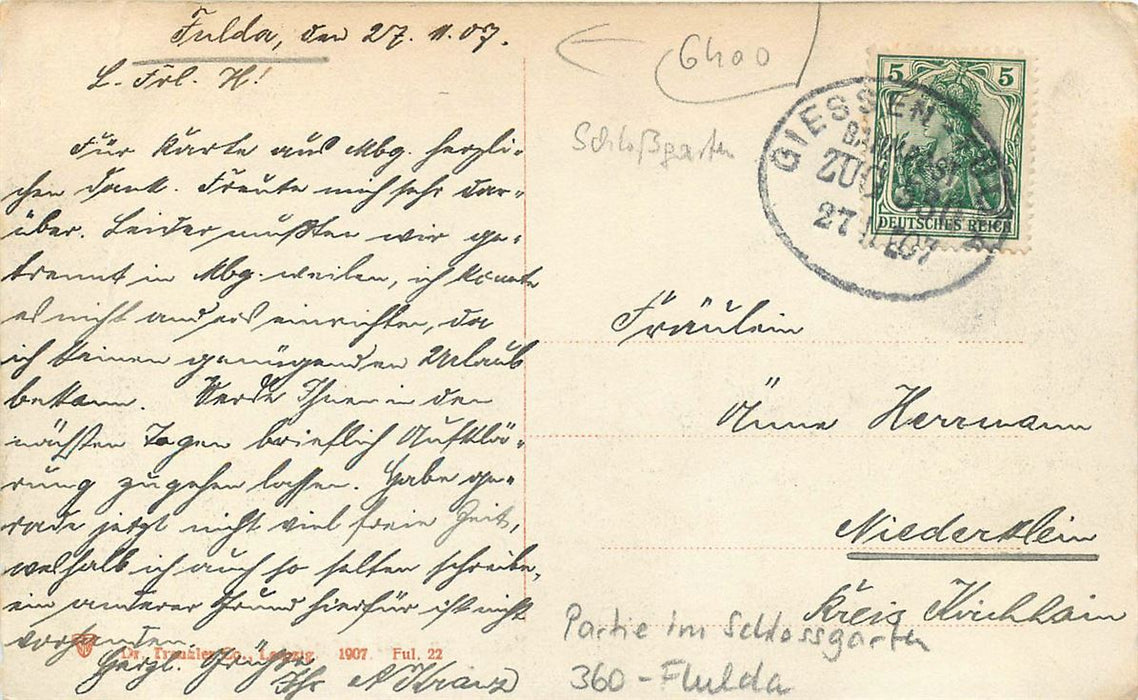 Fulda, den 27. 11. 07.
L. Frl. H!
Für Karte aus Mbg. herzli-
chen Dank. Freute mich sehr dar-
über. Leider mußten wir ge-
trennt in Mbg. weilen, ich konnte
es nicht anders einrichten, da
ich keinen genügenden Urlaub
bekam. Werde Ihnen in den
nächsten Tagen brieflich Aufklä-
rung zugehen lassen. Habe ge-
rade jetzt nicht viel freie Zeit,
weshalb ich auch so selten schreibe,
ein anderer Grund hierfür ist nicht
vorhanden.
Herzl. Grüße
Ihr A Kranz
Dr. Trenkler Co., Leipzig. 1907. Ful. 22
6400
Schloßgarten
5 5
DEUTSCHES REICH
GIESSEN - FULDA
BAHNPOST
ZUG
27 11 07
Fräulein
Änne Herrmann
Niederklein
Kreis Kirchhain
Partie im Schlossgarten
360 - Flulda